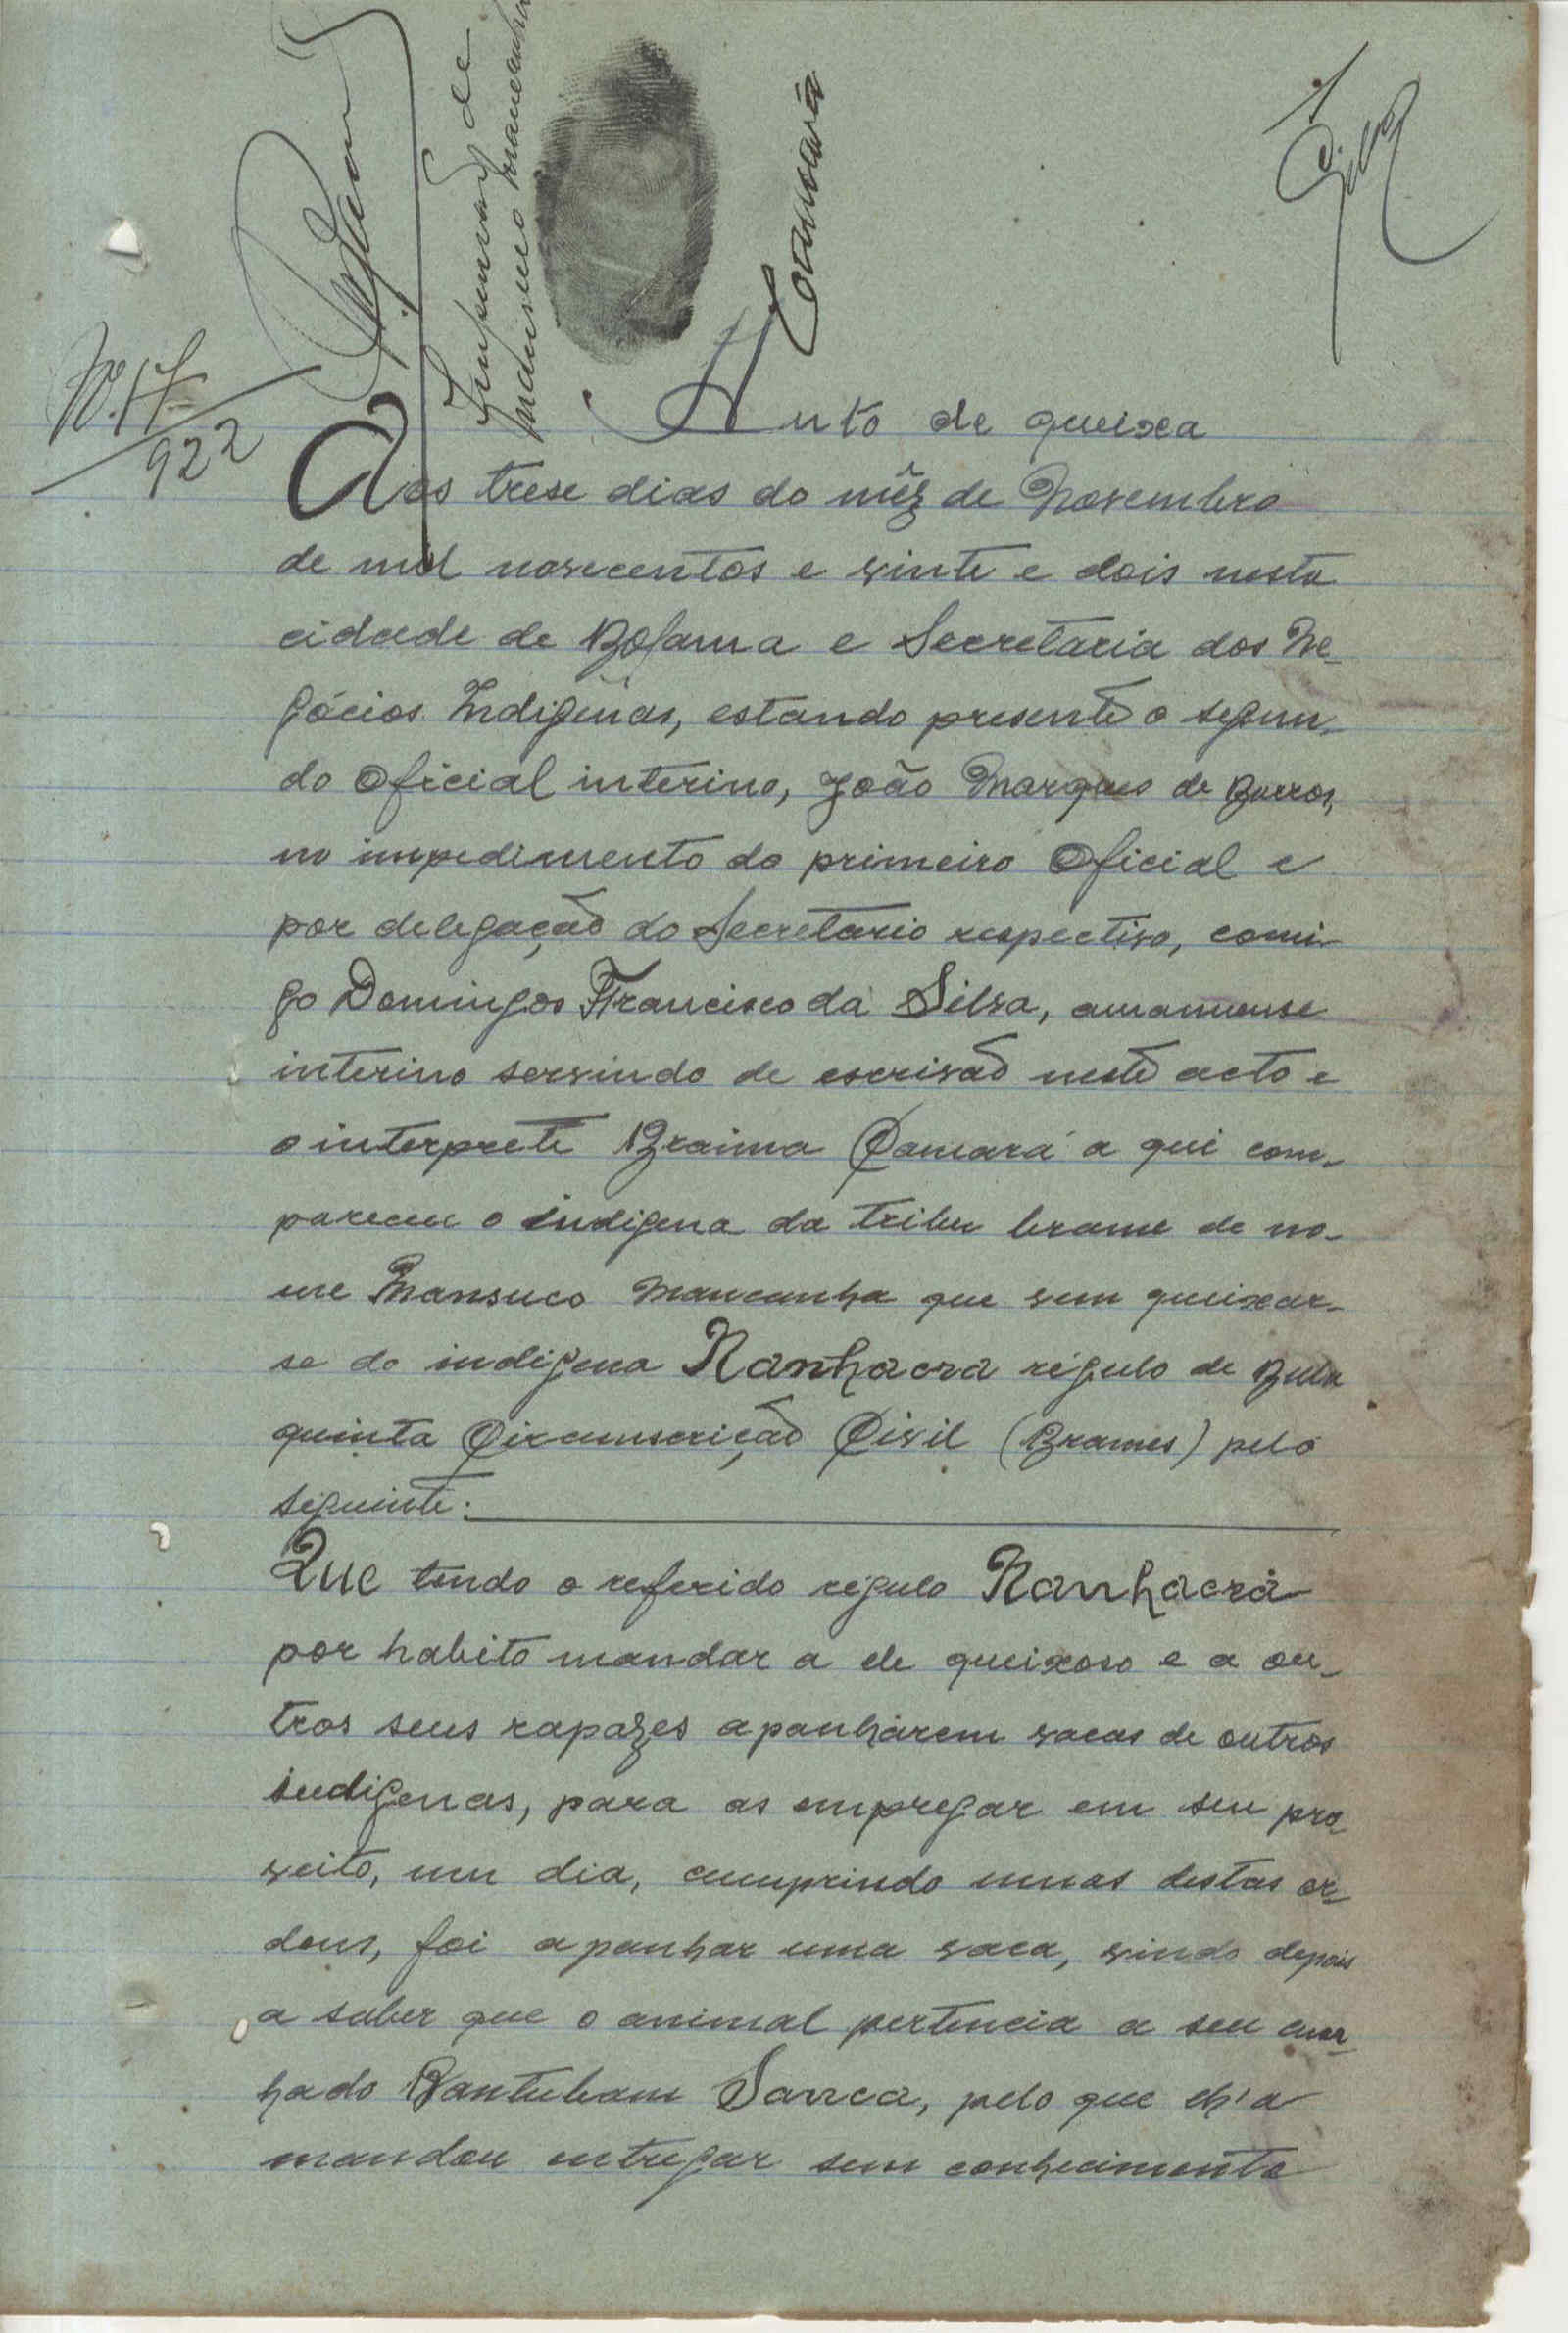 1
Silva
Impressão de
Mansuco Mancanha
Camará
Nº. 17
922
Auto de queixa
Aos trese dias do mêz de Novembro
de mil novecentos e vinte e dois nesta
cidade de Bolama e Secretaria dos Ne-
gócios Indigenas, estando presente o segun-
do Oficial interino, João Marques de Barros,
no impedimento do primeiro Oficial e
por delegação do Secretario respectivo, comi-
go Domingos Francisco da Silva, amanuense
interino servindo de escrivão neste acto e
o interprete Braima Camará a qui com-
pareceu o indigena da tribu brame de no-
me Mansuco Mancanha que vem queixar-
se do indigena Nanhacrá régulo de Bula
quinta Circunscrição Civil (Brames) pelo
seguinte:
Que tendo o referido régulo Nanhacrá
por habito mandar a ele queixoso e a ou-
tros seus rapazes apanhárem vacas de outros
indigenas, para as empregar em seu pro-
veito, um dia, cumprindo umas destas or-
dens, foi apanhar uma vaca, vindo depois
a saber que o animal pertencia a seu cun-
hado Bantubam Sanca, pelo que lh'a
mandou entregar sem conhecimento